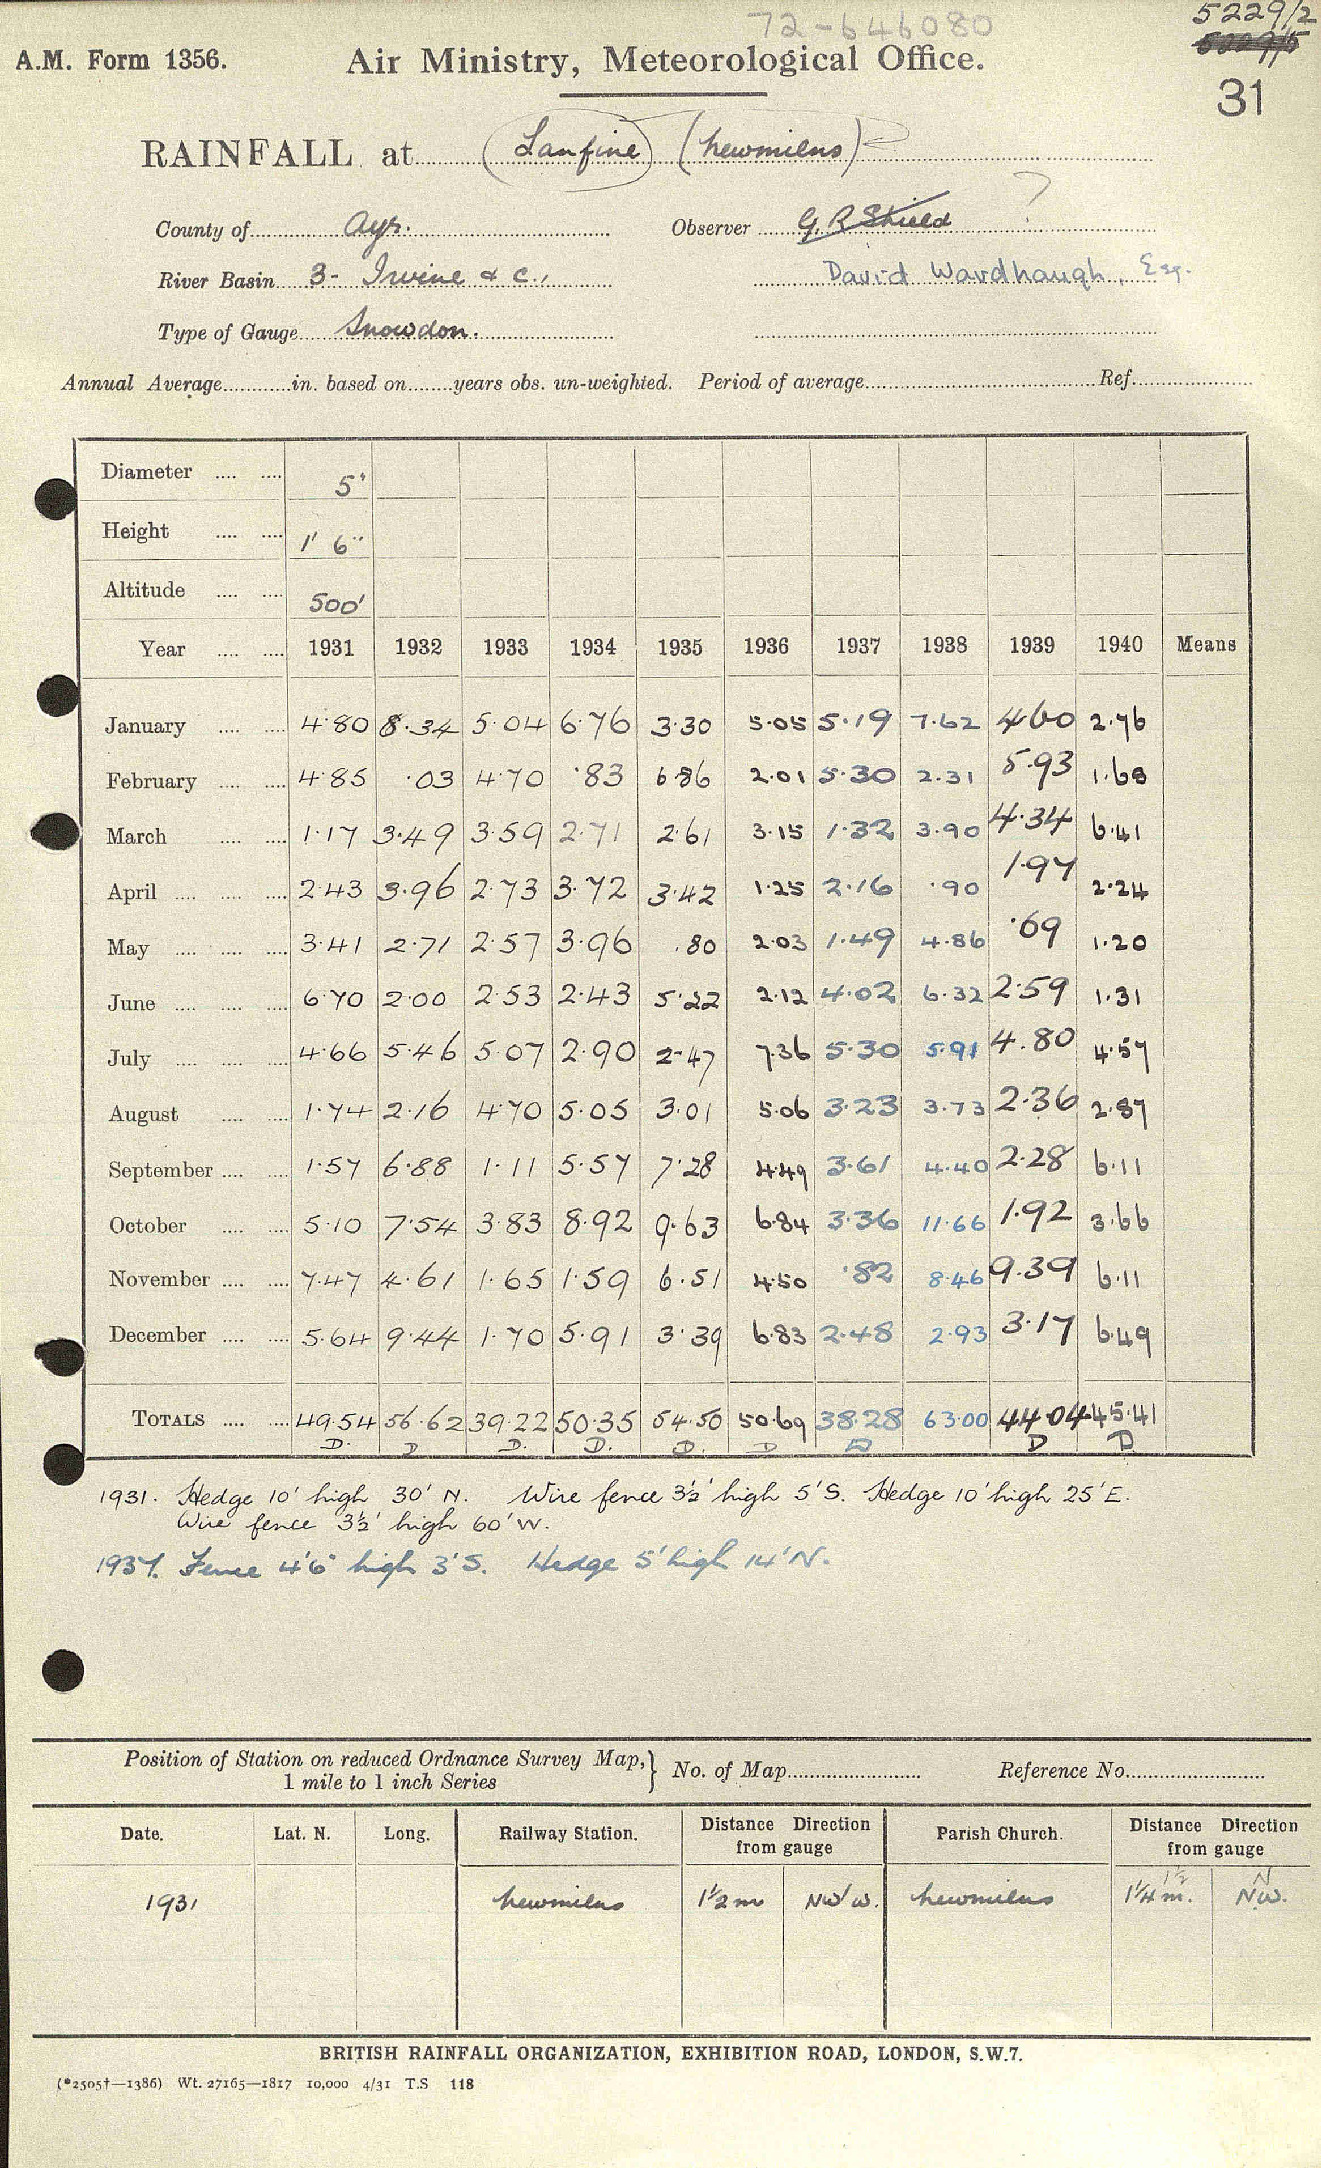 72-646080
5229/2
A.M. Form 1356.
Air Ministry, Meteorological Office.
31
RAINFALL at Lanfine (Newmilns)
County of Ayr. Observer G. R Shield ?
River Basin 3- Irvine & c., David Wardhaugh, Esq.
Type of Gauge Snowdon.
Annual Average in. based on years obs. un-weighted. Period of average Ref.
Diameter 5"
Height 1' 6"
Altitude 500'
Year 1931 1932 1933 1934 1935 1936 1937 1938 1939 1940 Means
January 4.80 8.34 5.04 6.76 3.30 5.05 5.19 7.62 4.60 2.76
February 4.85 .03 4.70 .83 6.86 2.01 5.30 2.31 5.93 1.68
March 1.17 3.49 3.59 2.71 2.61 3.15 1.32 3.90 4.34 6.41
April 2.43 3.96 2.73 3.72 3.42 1.25 2.16 .90 1.97 2.24
May 3.41 2.71 2.57 3.96 .80 2.03 1.49 4.86 .69 1.20
June 6.70 2.00 2.53 2.43 5.22 2.12 4.02 6.32 2.59 1.31
July 4.66 5.46 5.07 2.90 2.47 7.36 5.30 5.91 4.80 4.57
August 1.74 2.16 4.70 5.05 3.01 5.06 3.23 3.73 2.36 2.87
September 1.57 6.88 1.11 5.57 7.28 4.49 3.61 4.40 2.28 6.11
October 5.10 7.54 3.83 8.92 9.63 6.84 3.36 11.66 1.92 3.66
November 7.47 4.61 1.65 1.59 6.51 4.50 .82 8.46 9.39 6.11
December 5.64 9.44 1.70 5.91 3.39 6.83 2.48 2.93 3.17 6.49
TOTALS 49.54 56.62 39.22 50.35 54.50 50.69 38.28 63.00 44.04 45.41
D. D D. D. D. D D D D
1931. Hedge 10' high 30' N. Wire fence 3½' high 5' S. Hedge 10' high 25' E.
Wire fence 3½' high 60' W.
1937. Fence 4'6" high 3' S. Hedge 5' high 14' N.
Position of Station on reduced Ordnance Survey Map, } No. of Map Reference No.
1 mile to 1 inch Series
Date. Lat. N. Long. Railway Station. Distance Direction from gauge Parish Church. Distance Direction from gauge
1½ N
1931 Newmilns 1½ m NW'W. Newmilns 1¼ m. NW.
BRITISH RAINFALL ORGANIZATION, EXHIBITION ROAD, LONDON, S.W.7.
(*2505†—1386) Wt. 27165—1817 10,000 4/31 T.S 118